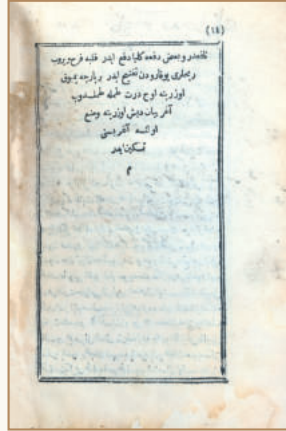 (١٤)
نافعدر و بعض دفعه كليا دفع ايدر قلبه فرح ويروب
ريحلرى يوقارودن تفتيح ايدر و پارچه پموق
اوزرينه اوچ درت طمله طمزدوب
آغريان ديش اوزرينه وضع
اولنسه آغريسنى
تسكين ايدر
م